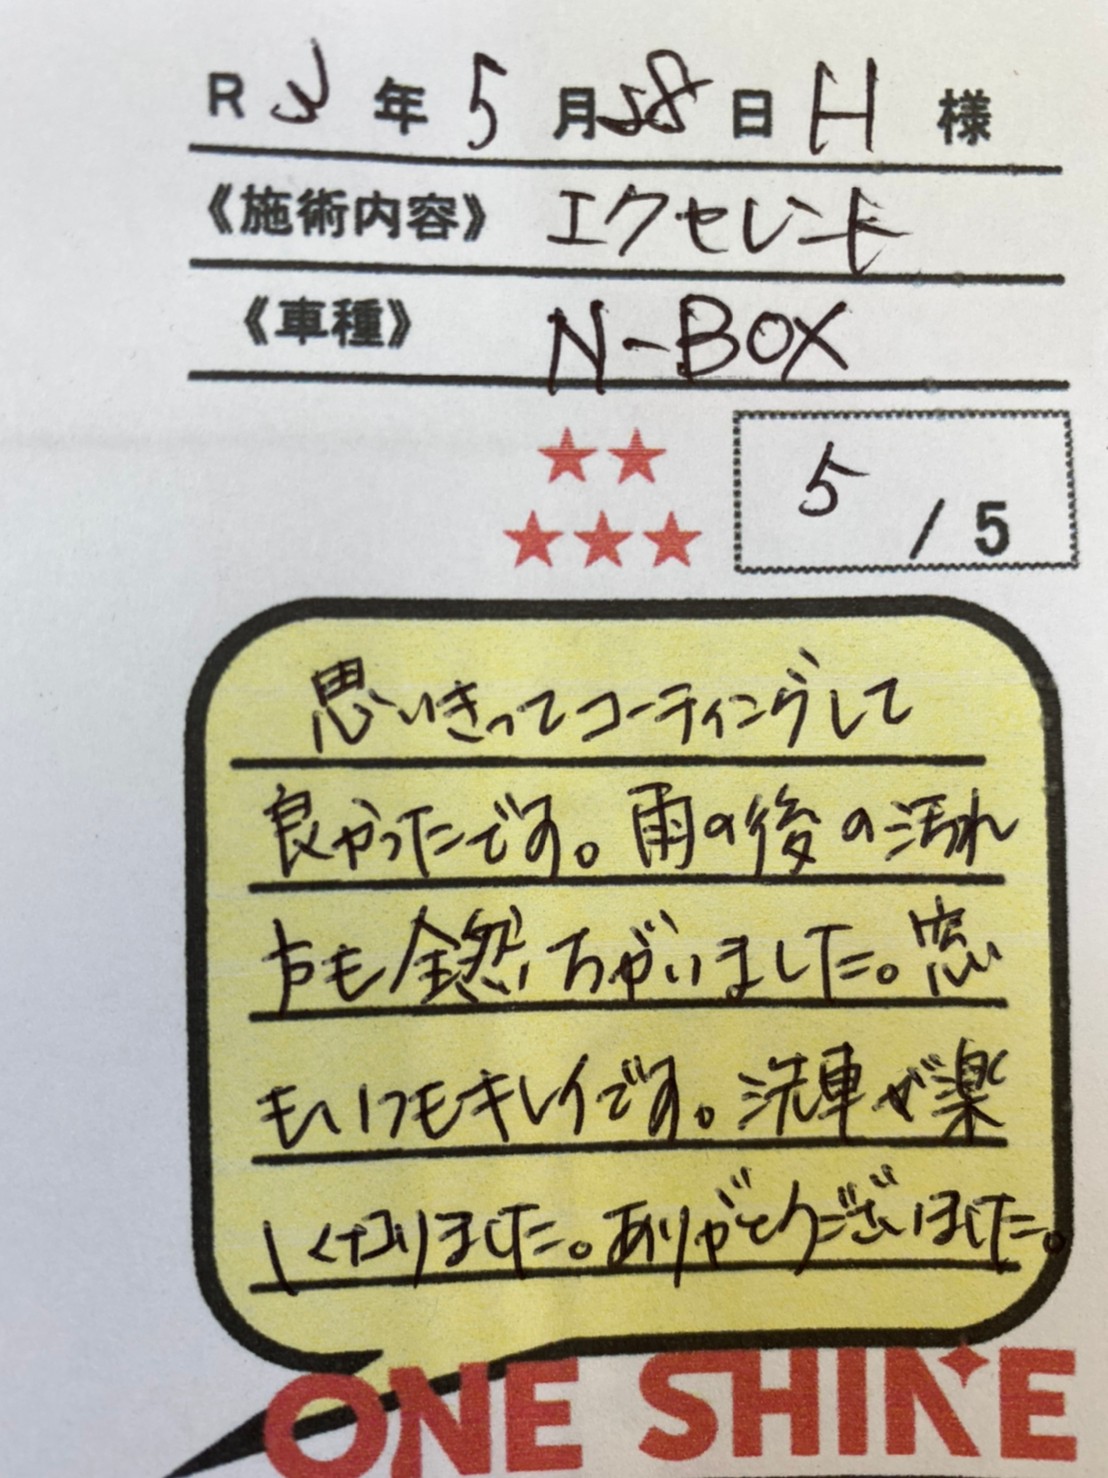 R 3 年 5 月 28 日 H 様
《施術内容》 エクセレント
《車種》 N-BOX
5 / 5
思いきってコーティングして
良かったです。雨の後の汚れ
方も全然ちがいました。窓
もいつもキレイです。洗車が楽
しくなりました。ありがとうございました。
ONE SHINE